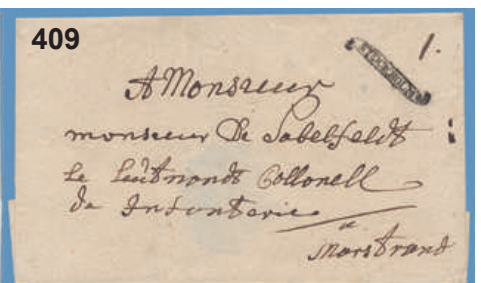 409
STOCKHOLM
1.
A Monsieur
monsieur De Sabelfeldt
Le Leutnandt Collonell
de Infanterie
a
Marstrand